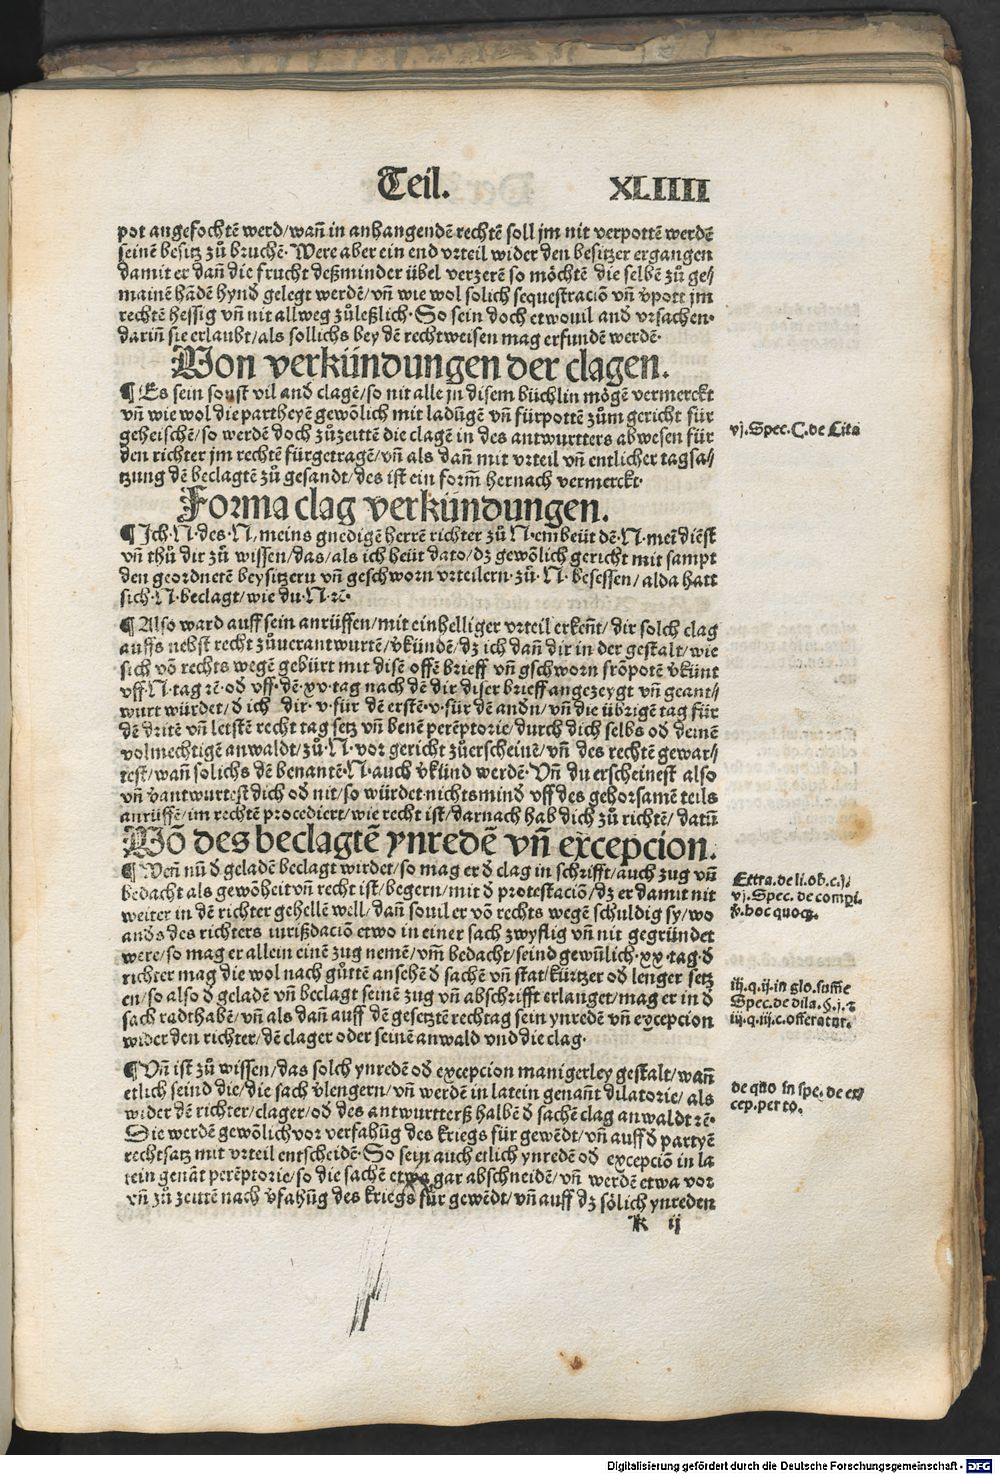 Teil. XLIIII
pot angefochtē werd/wañ in anhangendē rechtē soll jm nit verpottē werdē
seinē besitz zů bruchē. Were aber ein end vrteil wider den besitzer ergangen
damit er dañ die frucht deßminder übel verzerē so möchtē die selbē zů ge/
mainē hādē hynd gelegt werdē/vñ wie wol solich sequestraciō vñ v̄pott jm
rechtē hessig vñ nit allweg zůleßlich. So sein doch etwouil and vrsachen.
dariñ sie erlaubt/als sollichs bey dē rechtweisen mag erfundē werdē.
Von verkündungen der clagen.
¶ Es sein sonst vil and clagē/so nit alle jn disem büchlin mögē vermerckt
vñ wie wol die partheyē gewōlich mit ladūgē vñ fürpottē zům gericht für
geheischē/so werdē doch zůzeittē die clagē in des antwurtters abwesen für
den richter jm rechtē fürgetragē/vñ als dañ mit vrteil vñ entlicher tagsa/
tzung dē beclagtē zů gesandt/des ist ein form̄ hernach vermerckt.
vj. Spec. C. de Cita
Forma clag verkündungen.
¶ Ich. N. des. N, meins gnedigē herrē richter zů N. embeüt dē. N. mei͞ diēst
vñ thů dir zů wissen/das/als ich heüt dato/dz gewōlich gericht mit sampt
den geordnetē beysitzern vñ geschworn vrteilern zů. N. besessen/alda hatt
sich. N. beclagt/wie du. N. ꝛc̄.
¶ Also ward auff sein anrüffen/mit einhelliger vrteil erkeñt/dir solch clag
auffs nebst recht zůuerantwurtē/v̄kündē/dz ich dañ dir in der gestalt/wie
sich vō rechts wegē gebürt mit disē offē brieff vñ gschworn frōpotē v̄künt
vff. N. tag ꝛc̄. od vff. dē. xv. tag nach dē dir diser brieff angezeygt vñ geant/
wurt würdet/d ich dir. v. für dē erstē. v. für dē andn/vñ die übrigē tag für
dē dritē vñ letstē recht tag setz vñ benē perēptorie/durch dich selbs od deinē
volmechtigē anwaldt/zů. N. vor gericht zůerscheinē/vñ des rechtē gewar/
test/wañ solichs dē benantē. N. auch v̄künd werdē. Vñ du erscheinest also
vñ v̄antwurtest dich od nit/so würdet nichtsmind vff des gehorsamē teils
anrüffē/im rechtē procediert/wie recht ist/darnach hab dich zů richtē/datū
Vō des beclagtē ynredē vñ excepcion.
¶ Weñ nū d geladē beclagt wirdet/so mag er d clag in schrifft/auch zug vñ
bedacht als gewōheit vñ recht ist/begern/mit d protestaciō/dz er damit nit
weiter in dē richter gehellē well/dañ souil er vō rechts wegē schuldig sy/wo
ands des richters iurißdaciō etwo in einer sach zwyflig vñ nit gegründet
were/so mag er allein einē zug nemē/vm̄ bedacht/seind gewülich. xx. tag. d
richter mag die wol nach gůttē ansehē d sachē vñ stat/kürtzer od lenger setz
en/so also d geladē vñ beclagt seinē zug vñ abschrifft erlanget/mag er in d
sach radthabē/vñ als dañ auff dē gesetztē rechtag sein ynredē vñ excepcion
wider den richter/dē clager oder seinē anwald vnd die clag.
Extra. de li. ob. c. j.
vj. Spec. de compi.
v̄. hoc quoq̄.
iij. q. ij. in glo. summe
Spec. de dila. §. j. ꝛ
iij. q. iij. c. offeratur.
¶ Vñ ist zů wissen/das solch ynredē od excepcion manigerley gestalt/wañ
etlich seind die/die sach v̄lengern/vñ werdē in latein genañt dilatorie/als
wider dē richter/clager/od des antwurtterß halbē d sachē clag anwaldt ꝛc̄.
Die werdē gewōlich vor verfahūg des kriegs für gewēdt/vñ auff d partyē
rechtsatz mit vrteil entscheidē. So sein auch etlich ynredē od excepciō in la
tein genāt perēptorie/so die sachē etwa gar abschneidē/vñ werdē etwa vor
vñ zů zeittē nach v̄fahūg des kriegs für gewēdt/vñ auff dz sölich ynreden
de quo in spe. de ex/
cep. per to.
K ij
Digitalisierung gefördert durch die Deutsche Forschungsgemeinschaft - DFG